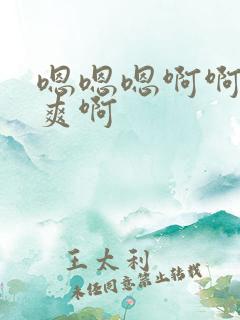 嗯嗯嗯啊啊
爽啊
王太利
未经同意禁止转载